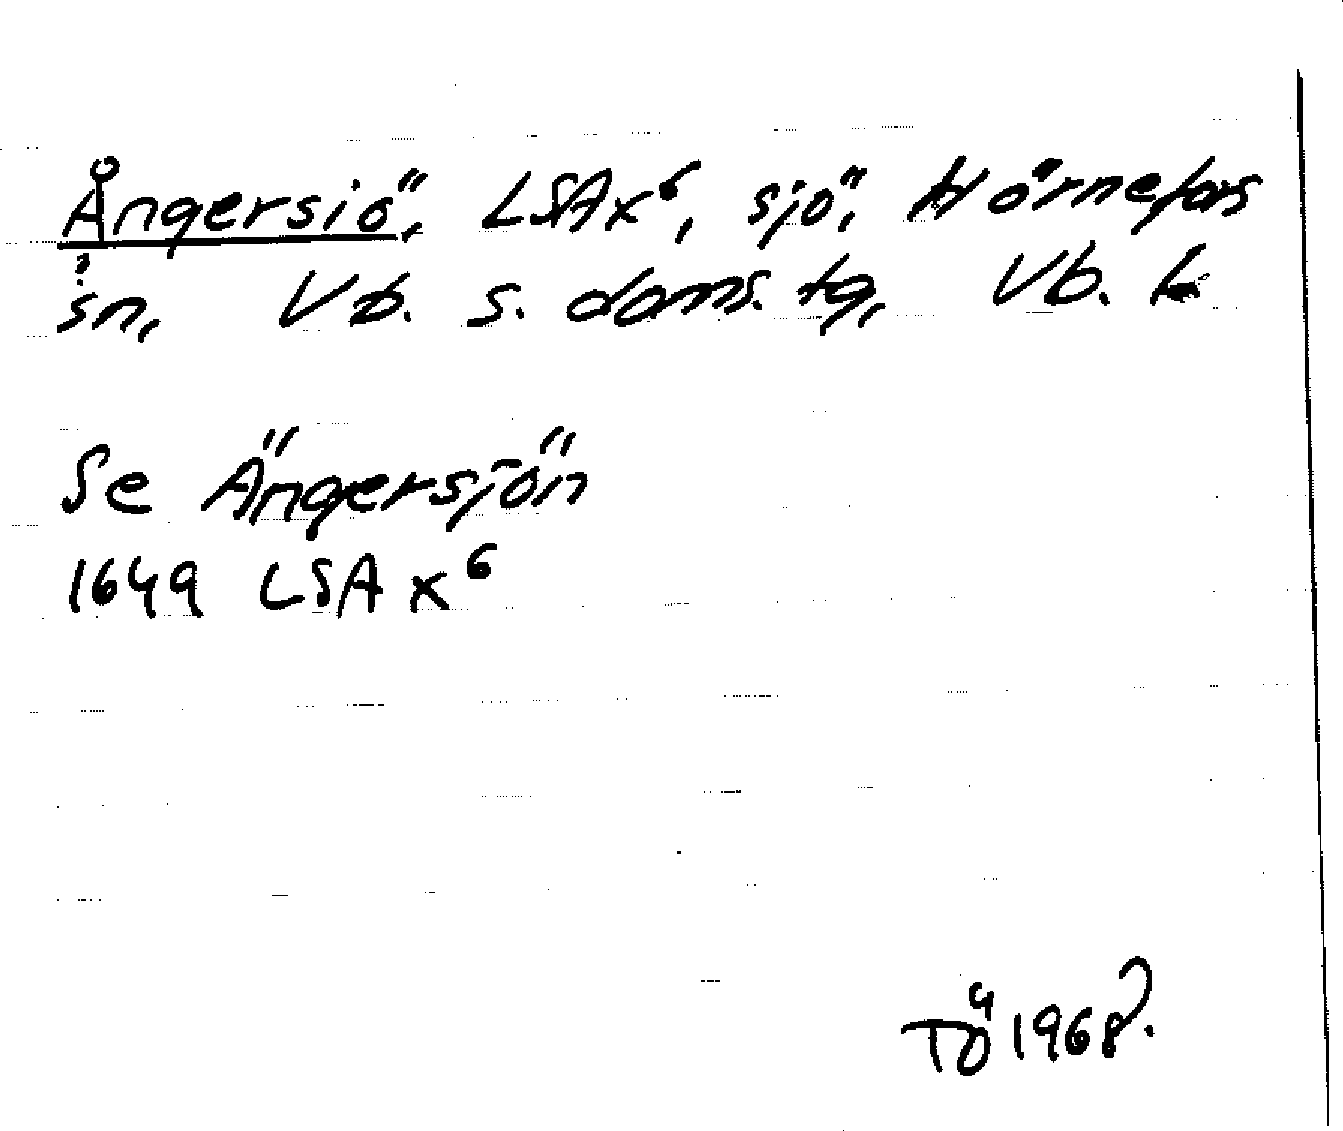 Ångersiö, LSAx⁶, sjö, Hörnefors
sn, Vb. s. doms. tg, Vb. l.
Se Ängersjön
1649 LSA x⁶
TÖ 1968.